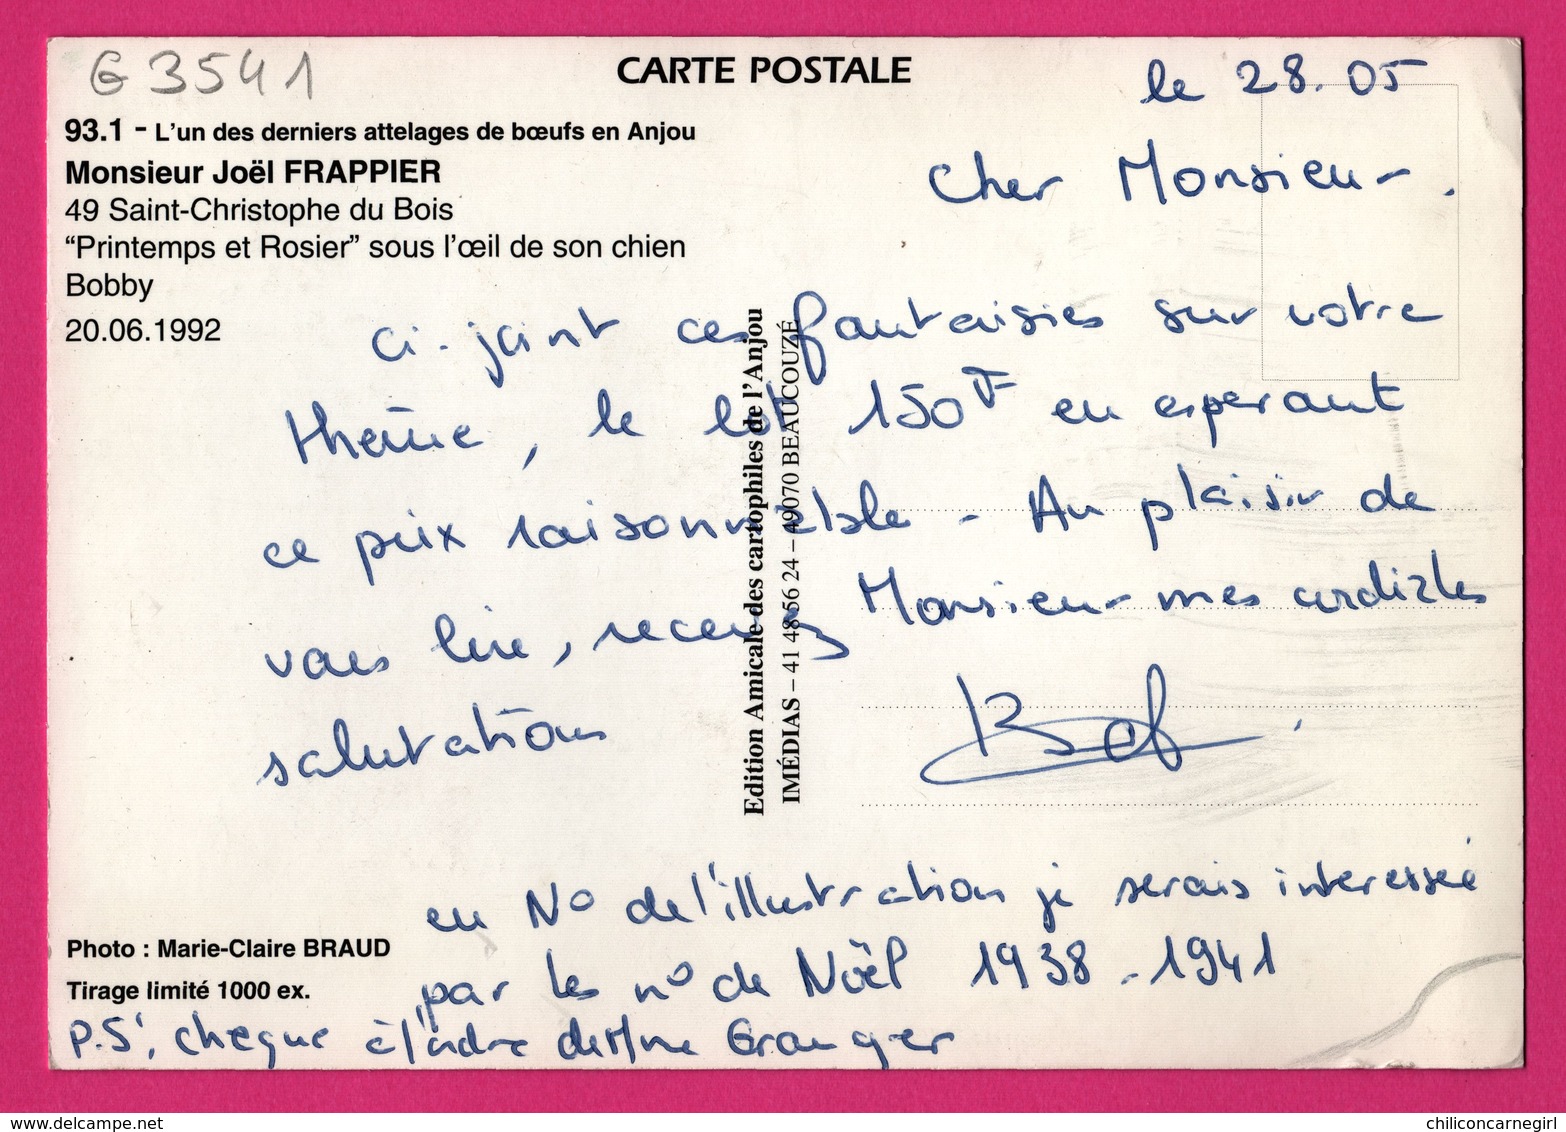 G 3541
CARTE POSTALE
le 28.05
93.1 - L'un des derniers attelages de bœufs en Anjou
Monsieur Joël FRAPPIER
49 Saint-Christophe du Bois
“Printemps et Rosier” sous l'œil de son chien
Bobby
20.06.1992
Cher Monsieur.
ci-joint ces fantaisies sur votre
thème, le lot 150F en esperant
ce prix raisonnable - Au plaisir de
vous lire, recevez Monsieur mes cordiales
salutations
Edition Amicale des cartophiles de l'Anjou
IMÉDIAS – 41 48 56 24 – 49070 BEAUCOUZÉ
en N° de l'illustration je serais interessée
par les n° de Noël 1938 - 1941
Photo : Marie-Claire BRAUD
Tirage limité 1000 ex.
P.S. cheque à l'ordre de Mme Granger
delcampe.net
chiliconcarnegirl